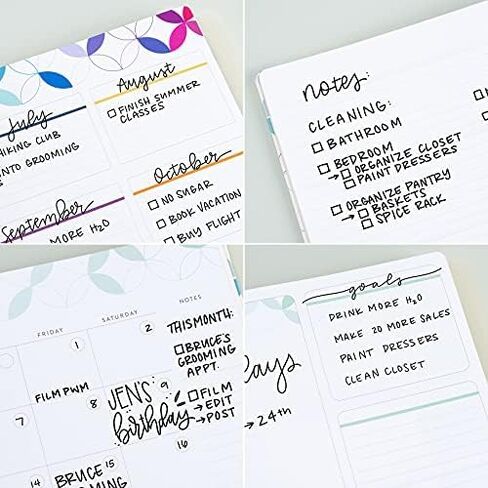 July
HIKING CLUB
INTO GROOMING
August
FINISH SUMMER
CLASSES
September
MORE H2O
October
NO SUGAR
BOOK VACATION
BUY FLIGHT
notes:
CLEANING:
BATHROOM
BEDROOM
→ ORGANIZE CLOSET
PAINT DRESSERS
ORGANIZE PANTRY
→ BASKETS
SPICE RACK
FRIDAY
SATURDAY
NOTES
1
2
THIS MONTH:
BRUCE'S
GROOMING
APPT.
FILM PWM
7
8
JEN'S 9
birthday
FILM
→ EDIT
→ POST
14
BRUCE 15
GROOMING
16
goals
DRINK MORE H2O
MAKE 20 MORE SALES
PAINT DRESSERS
CLEAN CLOSET
days
→ 24th